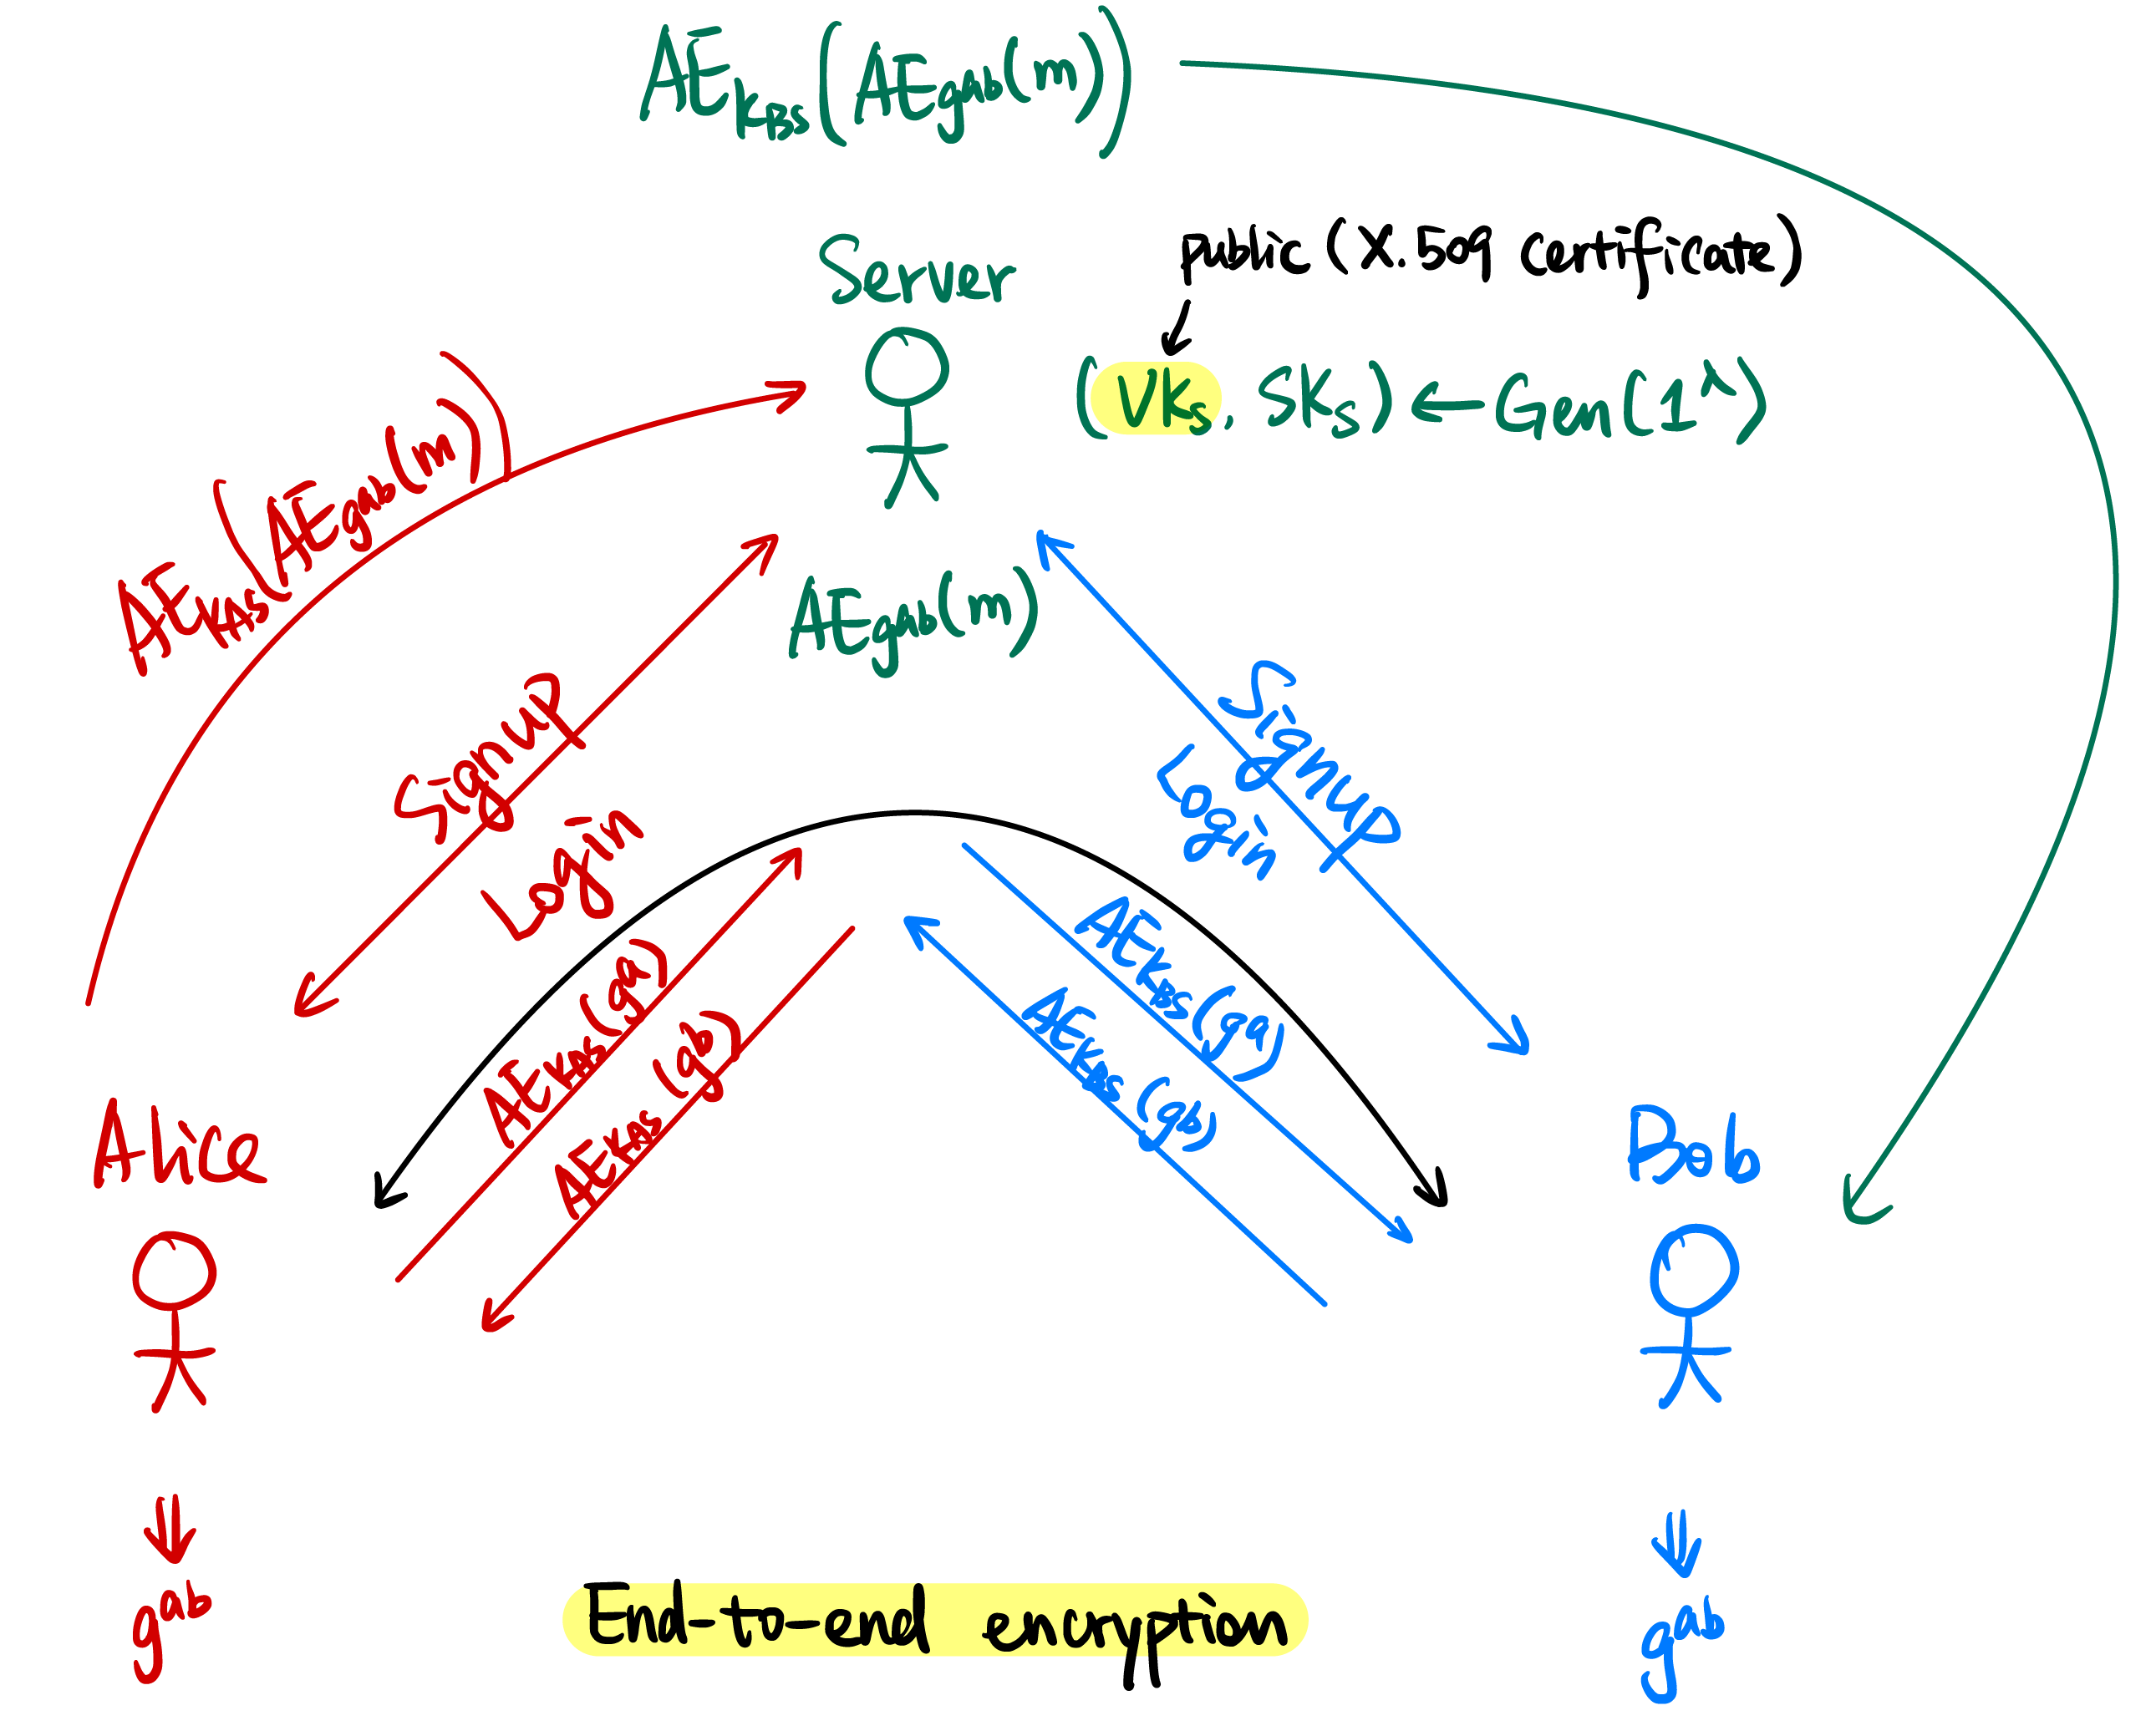 AE_{k_{BS}}(AE_{g^{ab}}(m))
Server
public (X.509 certificate)
(Vk_s, Sk_s) ← Gen(1^λ)
AE_{k_{AS}}(AE_{g^{ab}}(m))
AE_{g^{ab}}(m)
Signup
Login
Signup
Login
AE_{k_{AS}}(g^a)
AE_{k_{AS}}(g^b)
AE_{k_{BS}}(g^a)
AE_{k_{BS}}(g^b)
Alice
Bob
g^{ab}
g^{ab}
End-to-end encryption